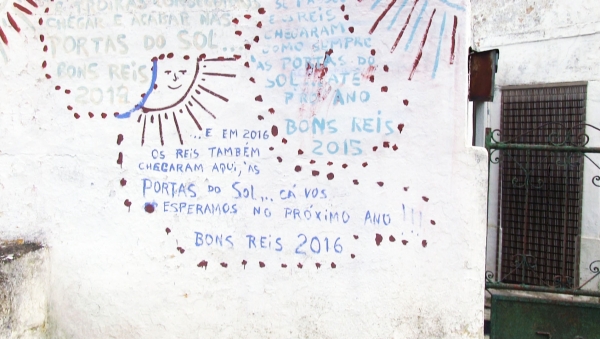 CHEGAR E ACABAR NAS
PORTAS DO SOL...
BONS REIS
E REIS
CHEGARAM
COMO SEMPRE
ÀS PORTAS DO
SOL... ATÉ
PRO ANO
BONS REIS
2015
...E EM 2016
OS REIS TAMBÉM
CHEGARAM AQUI, ÀS
PORTAS DO SOL... CÁ VOS
ESPERAMOS NO PRÓXIMO ANO!!!
BONS REIS 2016